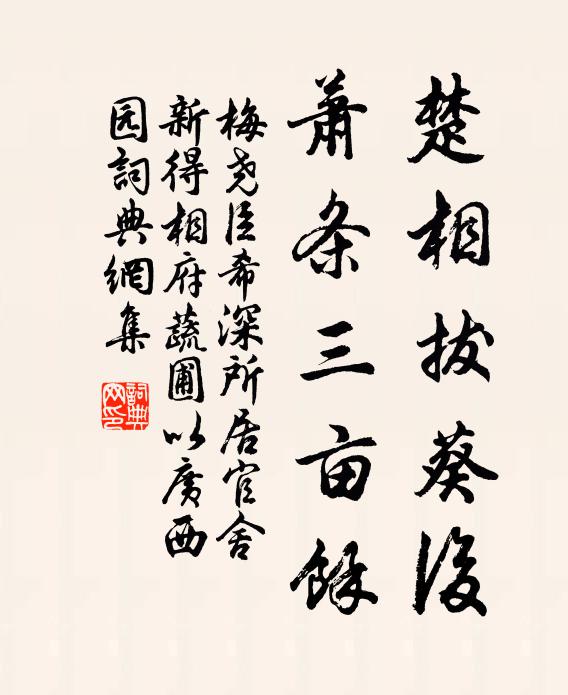 楚相拔葵後
蕭条三亩餘
梅尧臣希深所居官舍
新得相府蔬圃以廣西
园詞典網集
詞典
网印